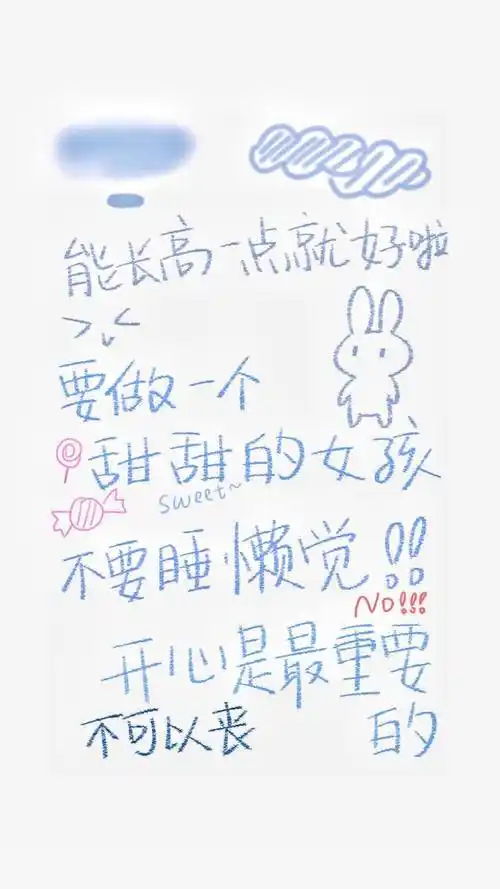 能长高一点就好啦
>.<
要做一个
甜甜的女孩
sweet~
不要睡懒觉!!
NO!!!
开心是最重要
的
不可以丧